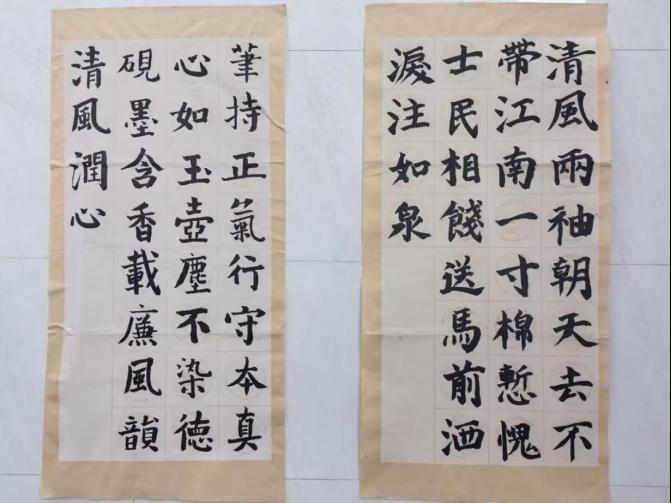 清風兩袖朝天去不
帶江南一寸棉慙愧
士民相餞送馬前洒
淚注如泉
筆持正氣行守本真
心如玉壺塵不染德
硯墨含香載廉風韻
清風潤心